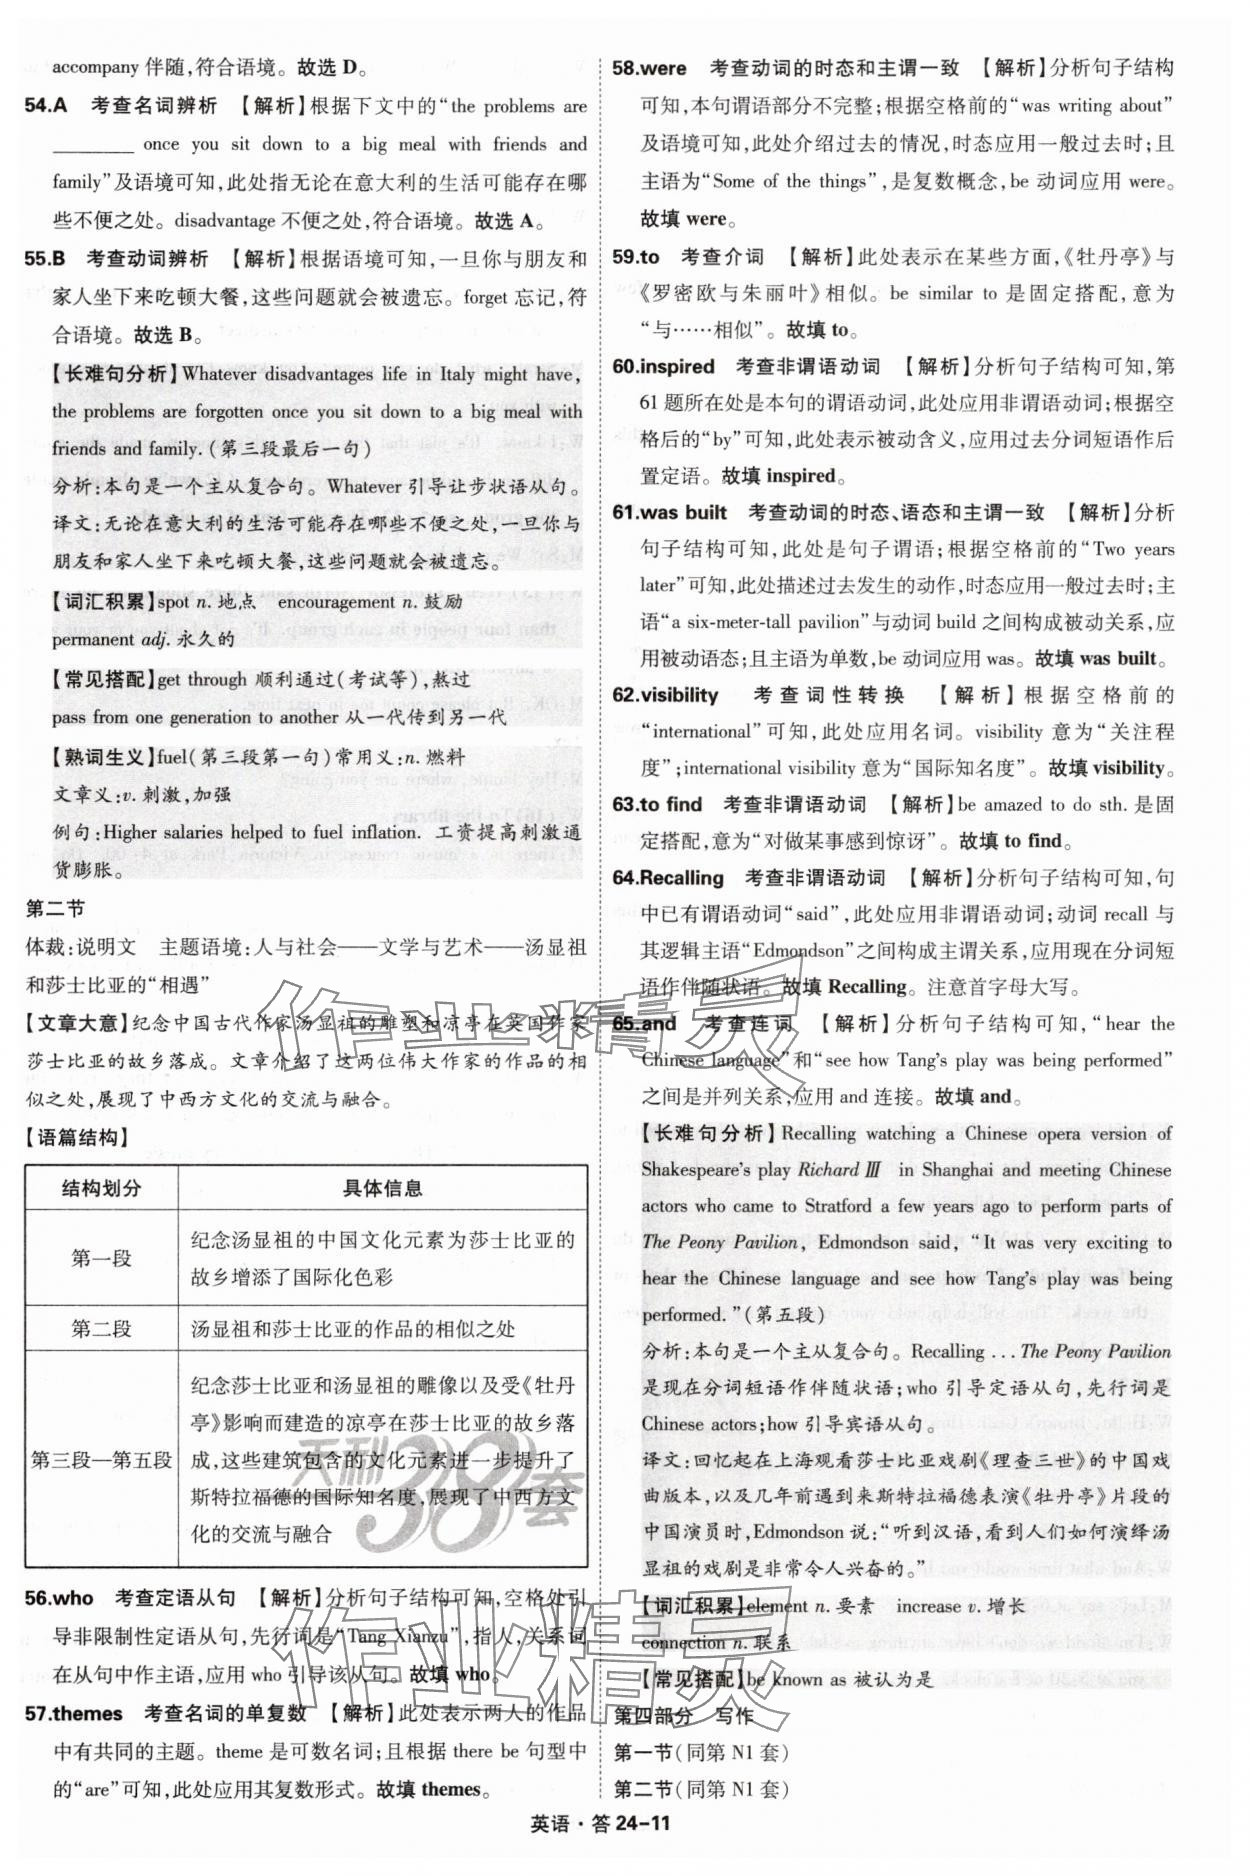 accompany 伴随,符合语境。故选 D。
54.A 考查名词辨析 【解析】根据下文中的“the problems are
________ once you sit down to a big meal with friends and
family”及语境可知,此处指无论在意大利的生活可能存在哪
些不便之处。disadvantage 不便之处,符合语境。故选 A。
55.B 考查动词辨析 【解析】根据语境可知,一旦你与朋友和
家人坐下来吃顿大餐,这些问题就会被遗忘。forget 忘记,符
合语境。故选 B。
【长难句分析】Whatever disadvantages life in Italy might have,
the problems are forgotten once you sit down to a big meal with
friends and family. (第三段最后一句)
分析:本句是一个主从复合句。Whatever 引导让步状语从句。
译文:无论在意大利的生活可能存在哪些不便之处,一旦你与
朋友和家人坐下来吃顿大餐,这些问题就会被遗忘。
【词汇积累】spot n. 地点 encouragement n. 鼓励
permanent adj. 永久的
【常见搭配】get through 顺利通过(考试等),熬过
pass from one generation to another 从一代传到另一代
【熟词生义】fuel(第三段第一句)常用义:n. 燃料
文章义:v. 刺激,加强
例句:Higher salaries helped to fuel inflation. 工资提高刺激通
货膨胀。
第二节
体裁:说明文 主题语境:人与社会——文学与艺术——汤显祖
和莎士比亚的“相遇”
【文章大意】纪念中国古代作家汤显祖的雕塑和凉亭在英国作家
莎士比亚的故乡落成。文章介绍了这两位伟大作家的作品的相
似之处,展现了中西方文化的交流与融合。
【语篇结构】
结构划分 具体信息
第一段 纪念汤显祖的中国文化元素为莎士比亚的
故乡增添了国际化色彩
第二段 汤显祖和莎士比亚的作品的相似之处
第三段—第五段 纪念莎士比亚和汤显祖的雕像以及受《牡丹
亭》影响而建造的凉亭在莎士比亚的故乡落
成,这些建筑包含的文化元素进一步提升了
斯特拉福德的国际知名度,展现了中西方文
化的交流与融合
56.who 考查定语从句 【解析】分析句子结构可知,空格处引
导非限制性定语从句,先行词是“Tang Xianzu”,指人,关系词
在从句中作主语,应用 who 引导该从句。故填 who。
57.themes 考查名词的单复数 【解析】此处表示两人的作品
中有共同的主题。theme 是可数名词;且根据 there be 句型中
的“are”可知,此处应用其复数形式。故填 themes。
58.were 考查动词的时态和主谓一致 【解析】分析句子结构
可知,本句谓语部分不完整;根据空格前的“was writing about”
及语境可知,此处介绍过去的情况,时态应用一般过去时;且
主语为“Some of the things”,是复数概念,be 动词应用 were。
故填 were。
59.to 考查介词 【解析】此处表示在某些方面,《牡丹亭》与
《罗密欧与朱丽叶》相似。be similar to 是固定搭配,意为
“与……相似”。故填 to。
60.inspired 考查非谓语动词 【解析】分析句子结构可知,第
61 题所在处是本句的谓语动词,此处应用非谓语动词;根据空
格后的“by”可知,此处表示被动含义,应用过去分词短语作后
置定语。故填 inspired。
61.was built 考查动词的时态、语态和主谓一致 【解析】分析
句子结构可知,此处是句子谓语;根据空格前的“Two years
later”可知,此处描述过去发生的动作,时态应用一般过去时;主
语“a six-meter-tall pavilion”与动词 build 之间构成被动关系,应
用被动语态;且主语为单数,be 动词应用 was。故填 was built。
62.visibility 考查词性转换 【解析】根据空格前的
“international”可知,此处应用名词。visibility 意为“关注程
度”;international visibility 意为“国际知名度”。故填 visibility。
63.to find 考查非谓语动词 【解析】be amazed to do sth. 是固
定搭配,意为“对做某事感到惊讶”。故填 to find。
64.Recalling 考查非谓语动词 【解析】分析句子结构可知,句
中已有谓语动词“said”,此处应用非谓语动词;动词 recall 与
其逻辑主语“Edmondson”之间构成主谓关系,应用现在分词短
语作伴随状语。故填 Recalling。注意首字母大写。
65.and 考查连词 【解析】分析句子结构可知,“hear the
Chinese language”和“see how Tang’s play was being performed”
之间是并列关系,应用 and 连接。故填 and。
【长难句分析】Recalling watching a Chinese opera version of
Shakespeare’s play Richard Ⅲ in Shanghai and meeting Chinese
actors who came to Stratford a few years ago to perform parts of
The Peony Pavilion, Edmondson said, “It was very exciting to
hear the Chinese language and see how Tang’s play was being
performed.”(第五段)
分析:本句是一个主从复合句。Recalling ... The Peony Pavilion
是现在分词短语作伴随状语;who 引导定语从句,先行词是
Chinese actors;how 引导宾语从句。
译文:回忆起在上海观看莎士比亚戏剧《理查三世》的中国戏
曲版本,以及几年前遇到来斯特拉福德表演《牡丹亭》片段的
中国演员时,Edmondson 说:“听到汉语,看到人们如何演绎汤
显祖的戏剧是非常令人兴奋的。”
【词汇积累】element n. 要素 increase v. 增长
connection n. 联系
【常见搭配】be known as 被认为是
第四部分 写作
第一节(同第 N1 套)
第二节(同第 N1 套)
英语·答 24-11
作业精灵
天利38套
作业精灵